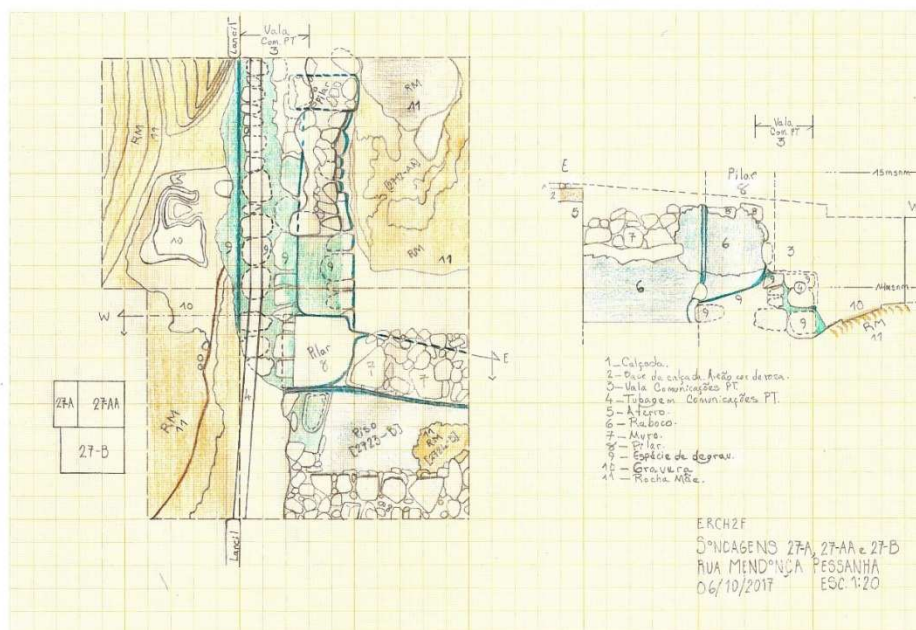 Lancil
Vala
Com. PT
3
RM
11
Pilar
RM
11
[2712-AA]
RM
11
10
9
9
9
9
10
W
E
Pilar
8
7
7
4
RM
11
Piso
[2723-B]
11
RM
[2724-B]
Lancil
27-A
27-AA
27-B
Vala
Com. PT
3
E
Pilar
8
15msnm
W
2
5
8
8
7
6
3
6
14msnm
9
9
4
9
10
RM
11
1_ Calçada.
2- Base da calçada Areão cor de rosa.
3- Vala Comunicações PT.
4- Tubagem Comunicações PT.
5- Aterro
6- Reboco.
7- Muro.
8- Pilar.
9 - Espécie de degrau.
10 - Gravura
11 - Rocha Mãe.
ERCH2F
SONDAGENS 27-A, 27-AA e 27-B
RUA MENDONÇA PESSANHA
06/10/2017 ESC. 1:20